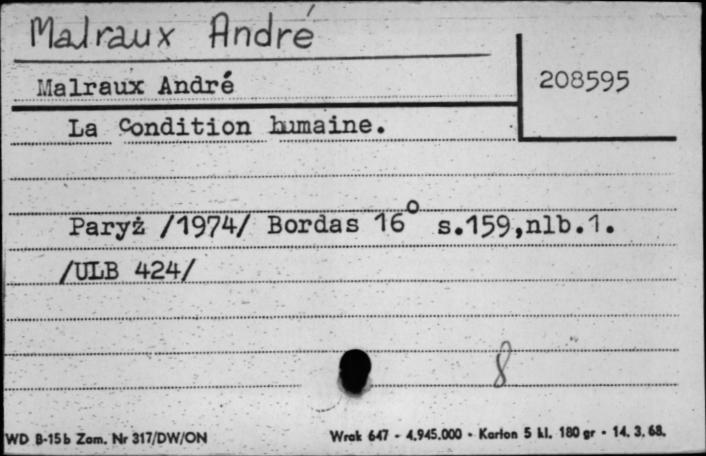 Malraux André
Malraux André
208595
La Condition humaine.
Paryż /1974/ Bordas 16° s.159,nlb.1.
/ULB 424/
8
WD B-15b Zam. Nr 317/DW/ON
Wrak 647 - 4.945.000 - Karton 5 kl. 180 gr - 14. 3. 68.